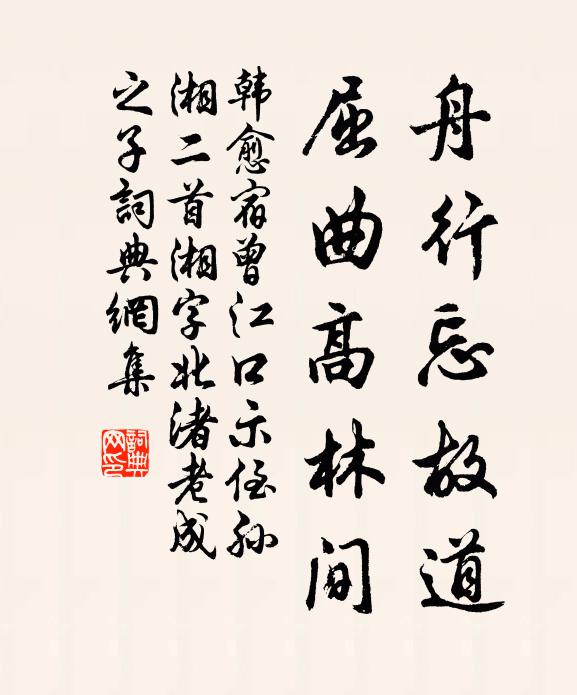 舟行忘故道
屈曲高林間
韓愈宿曾江口示侄孫
湘二首湘字北渚老成
之子詞典網集
詞典
网印